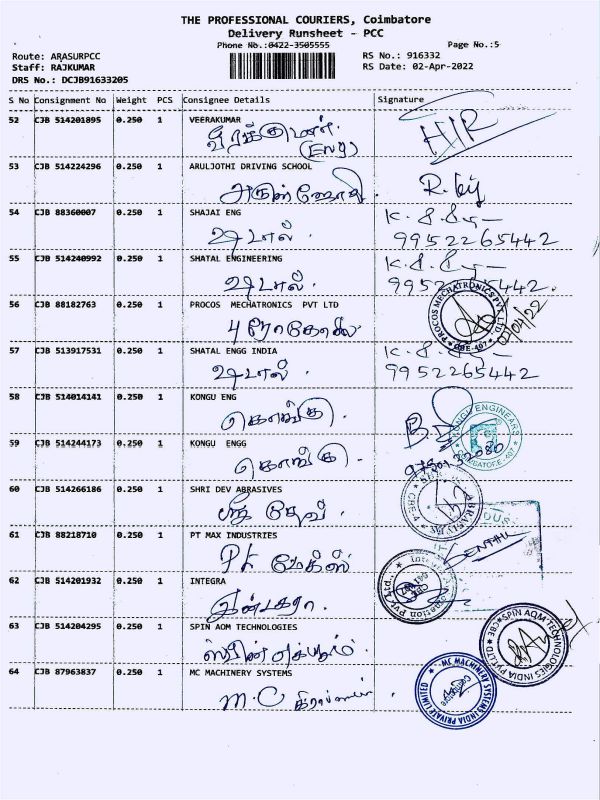 THE PROFESSIONAL COURIERS, Coimbatore
Delivery Runsheet - PCC
Phone No.:0422-3505555
Page No.:5
Route: ARASURPCC
RS No.: 916332
Staff: RAJKUMAR
RS Date: 02-Apr-2022
DRS No.: DCJB91633205
S No Consignment No Weight PCS Consignee Details Signature
52 CJB 514201895 0.250 1 VEERAKUMAR
(Eng)
53 CJB 514224296 0.250 1 ARULJOTHI DRIVING SCHOOL
அருள் ஜோதி
54 CJB 88360007 0.250 1 SHAJAI ENG
9952265442
55 CJB 514240992 0.250 1 SHATAL ENGINEERING
9952265442.
56 CJB 88182763 0.250 1 PROCOS MECHATRONICS PVT LTD
PROCOS MECHATRONICS PVT. LTD. CBE-407
02/04/22
57 CJB 513917531 0.250 1 SHATAL ENGG INDIA
9952265442
58 CJB 514014141 0.250 1 KONGU ENG
கொங்கு.
KONGU ENGINEARS
59 CJB 514244173 0.250 1 KONGU ENGG
கொங்கு.
60 CJB 514266186 0.250 1 SHRI DEV ABRASIVES
ஸ்ரீ தேவ்
61 CJB 88218710 0.250 1 PT MAX INDUSTRIES
Pt மேக்ஸ்
62 CJB 514201932 0.250 1 INTEGRA
இன்டகரா.
63 CJB 514204295 0.250 1 SPIN AOM TECHNOLOGIES
SPIN AOM TECHNOLOGIES INDIA PVT.LTD. CBE
64 CJB 87963837 0.250 1 MC MACHINERY SYSTEMS
M.C
MC MACHINERY SYSTEMS INDIA PRIVATE LIMITED
Coimbatore